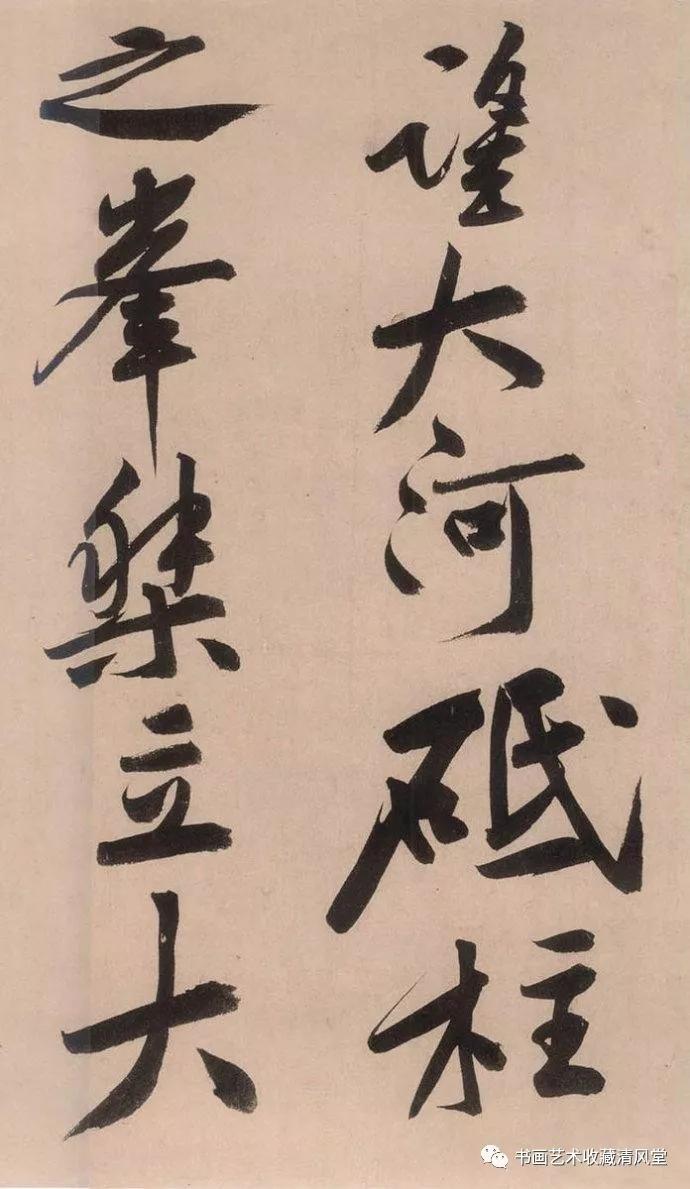 望大河砥柱
之峯桀立大
书画艺术收藏清风堂